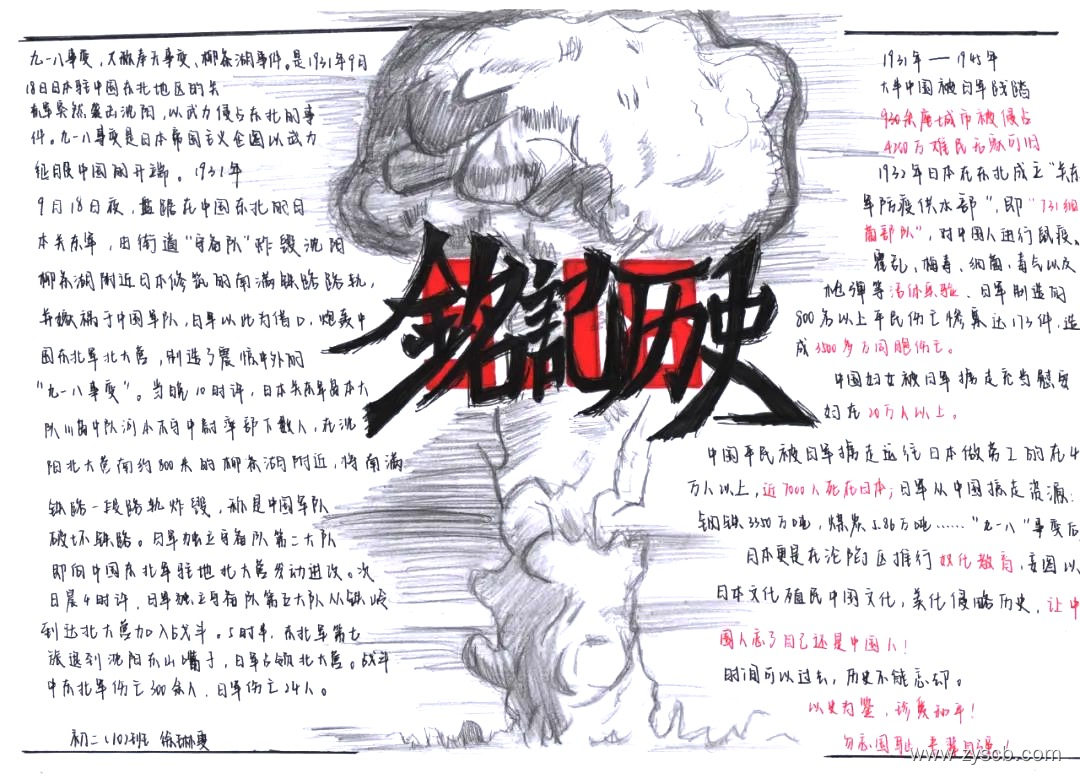 九一八事变,又称奉天事变、柳条湖事件。是1931年9月
18日日本驻中国东北地区的关
东军突然袭击沈阳,以武力侵占东北的事
件。九一八事变是日本帝国主义企图以武力
征服中国的开端。1931年
9月18日夜,盘踞在中国东北的日
本关东军,由铁道“守备队”炸毁沈阳
柳条湖附近日本修筑的南满铁路路轨,
并嫁祸于中国军队,日军以此为借口,炮轰中
国东北军北大营,制造了震惊中外的
“九一八事变”。当晚10时许,日本关东军岛本大
队川岛中队河本末守中尉率部下数人,在沈
阳北大营南约800米的柳条湖附近,将南满
铁路一段路轨炸毁,称是中国军队
破坏铁路。日军独立守备队第二大队
即向中国东北军驻地北大营发动进攻。次
日晨4时许,日军独立守备队第五大队从铁岭
到达北大营加入战斗。5时半,东北军第七
旅退到沈阳东山嘴子,日军占领北大营。战斗
中东北军伤亡300余人,日军伤亡24人。
初二(10)班
銘記历史
1931年—1945年
大半中国被日军践踏
930余座城市被侵占
4200万难民无家可归
1932年日本在东北成立“关东
军防疫供水部”,即“731细
菌部队”,对中国人进行鼠疫、
霍乱,梅毒,细菌,毒气以及
枪弹等活体实验、日军制造的
800名以上平民伤亡惨案达173件,造
成3500多万同胞伤亡。
中国妇女被日军掳走充当慰安
妇在20万人以上。
中国平民被日军掳走运往日本做劳工的在4
万人以上,近7000人死在日本;日军从中国掠走资源:
钢铁3350万吨,煤炭5.86万吨……“九一八”事变后,
日本更是在沦陷区推行奴化教育,妄图以
日本文化殖民中国文化,美化侵略历史,让中
国人忘了自己还是中国人!
时间可以过去,历史不能忘却。
以史为鉴,珍爱和平!
勿忘国耻,吾辈自强!
www.zyscb.com